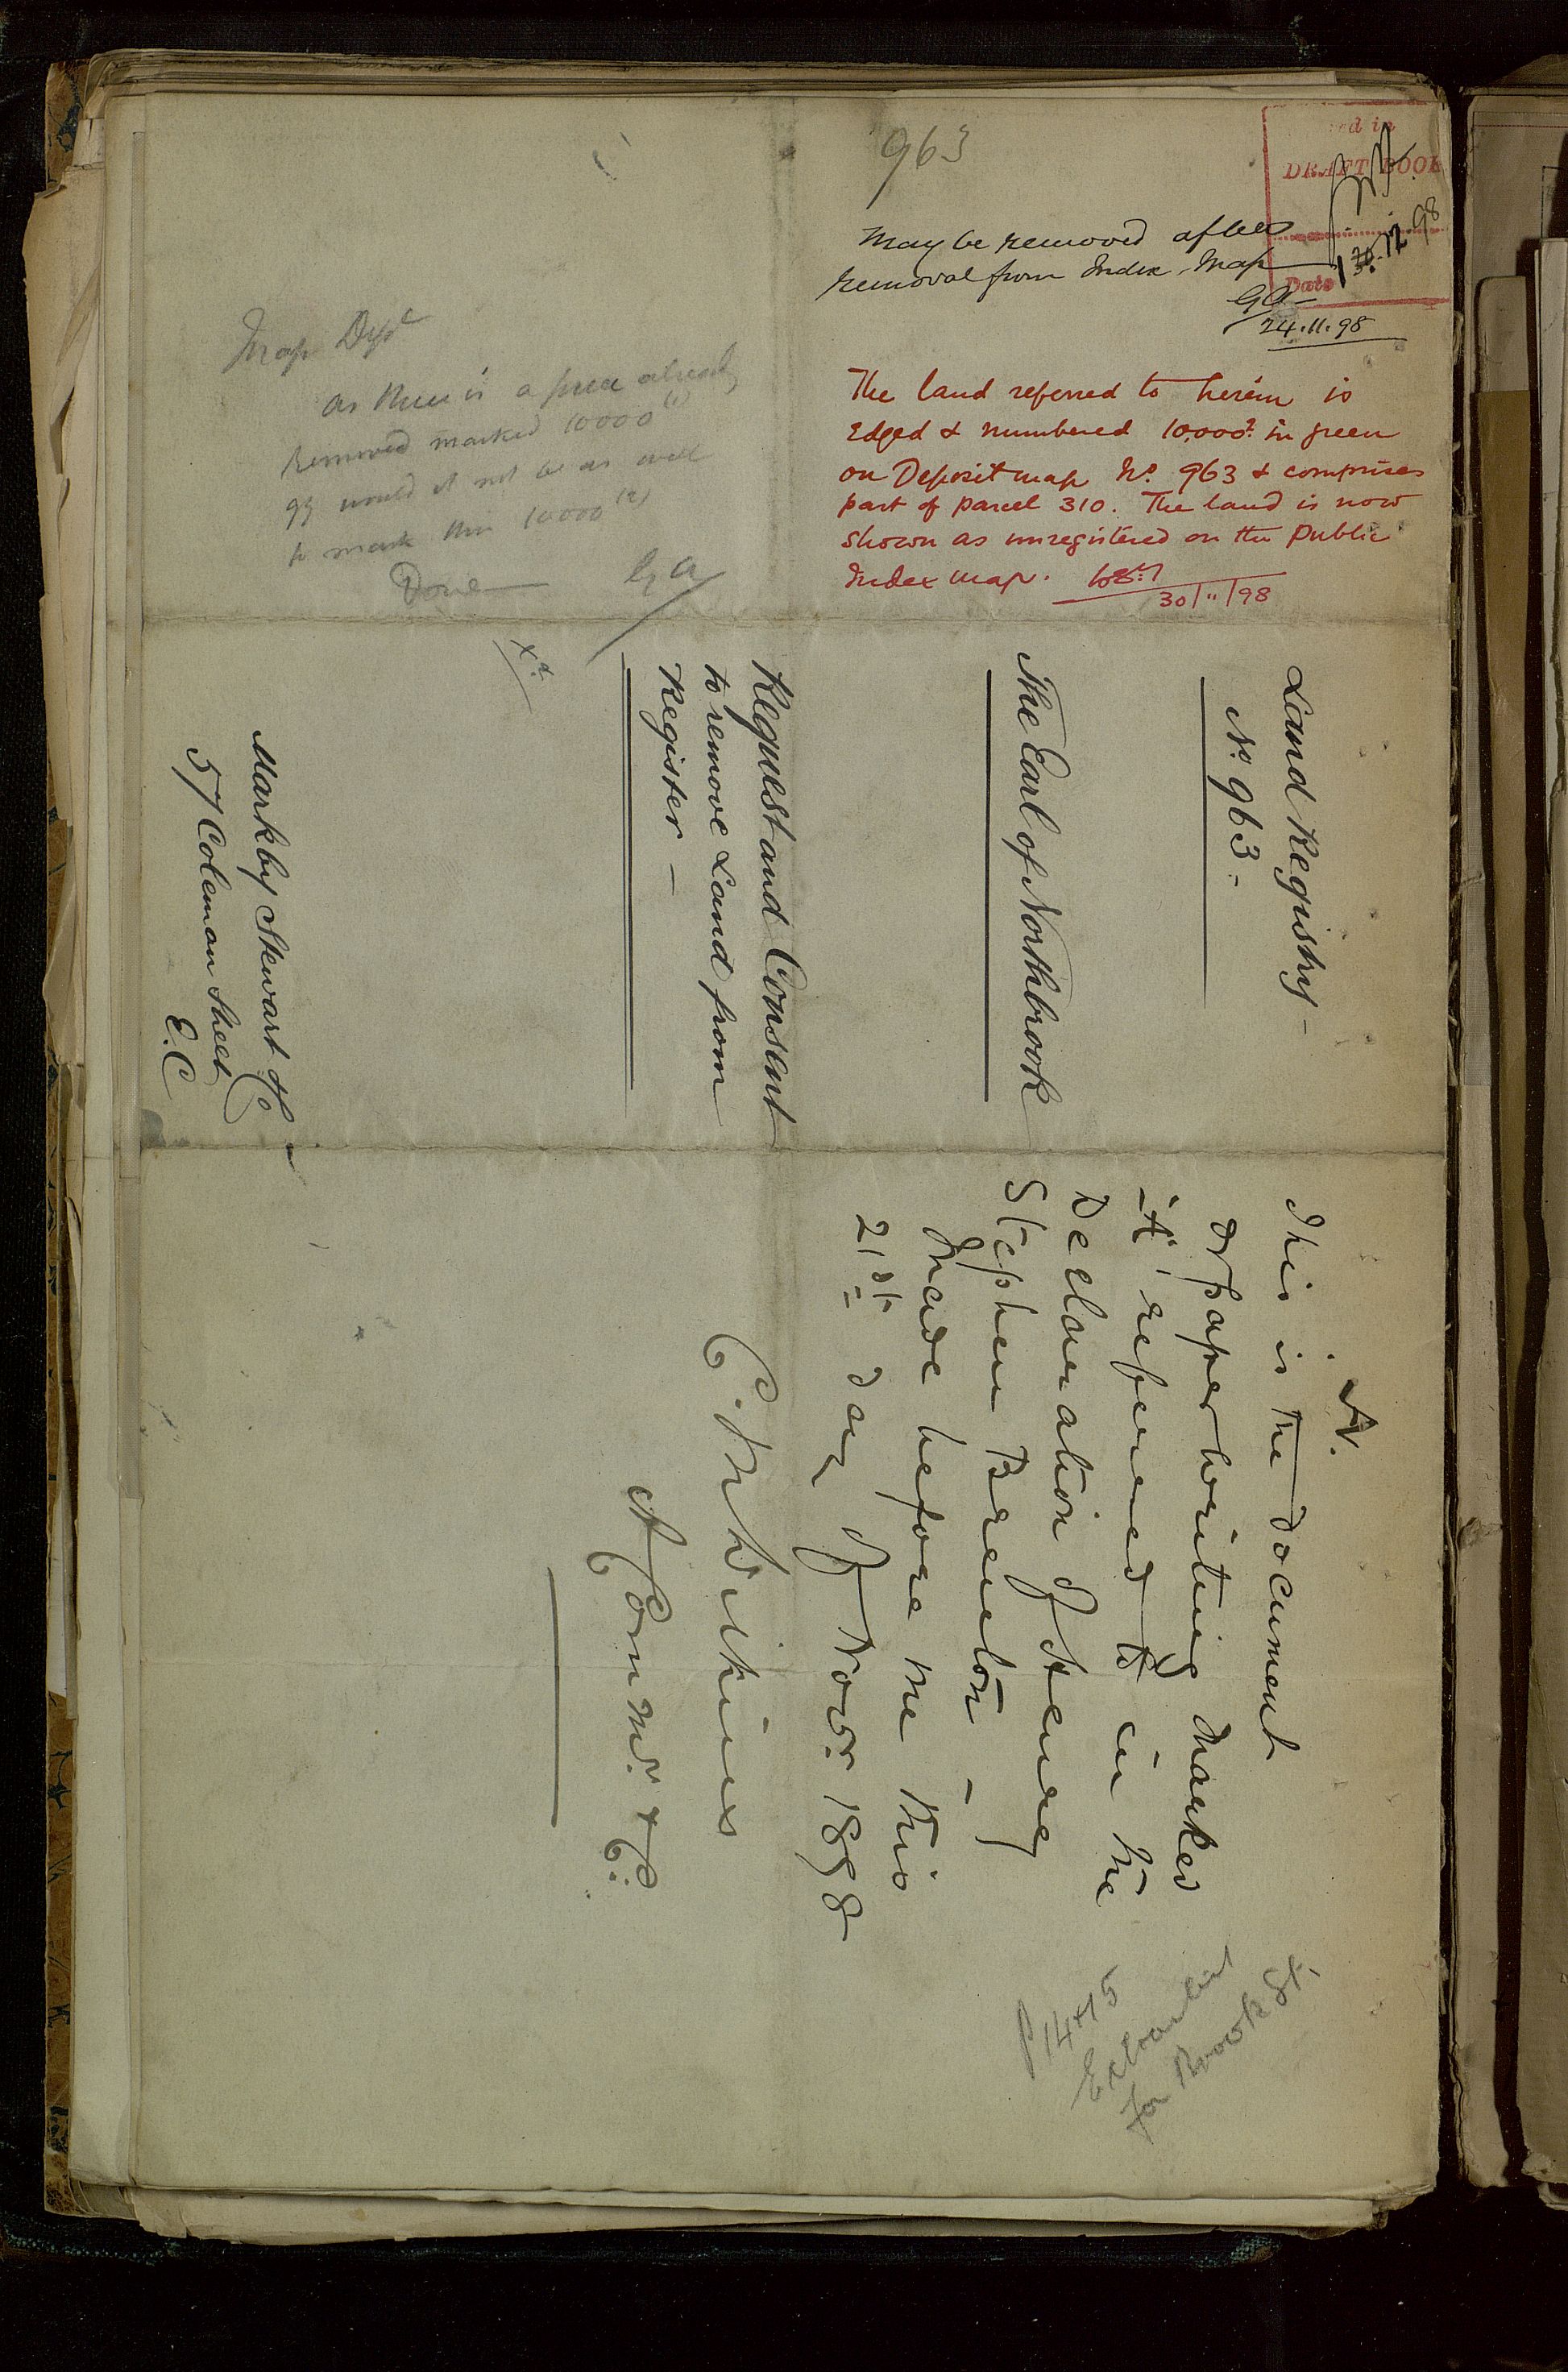 963
ed in
DRAFT BOOK
Date 1.12.98
May be removed after
removal from Index Map
GA
24.11.98
The land referred to herein is
Edged & numbered 10,000² in green
on Deposit map No. 963 & comprises
part of parcel 310. The land is now
shown as unregistered on the Public
Index map.
30/11/98
Map Dept
As there is a piece already
removed marked 10000 (1)
would it not be as well
to mark this 10000 (2)
Done GA
Land Registry -
No. 963 -
The Earl of Northbrook
Request and Consent
to remove Land from
Register -
Markby Stewart & Co
57 Coleman Street
E.C
A.
This is the document
or paper writing marked
"A" referred to in the
Declaration of Henry
Stephen Brenton -
made before me this
21st day of Novr. 1898
C. M. Wilkins
A Commr. &c:
P 14 & 15
Extra list
for Brook St.